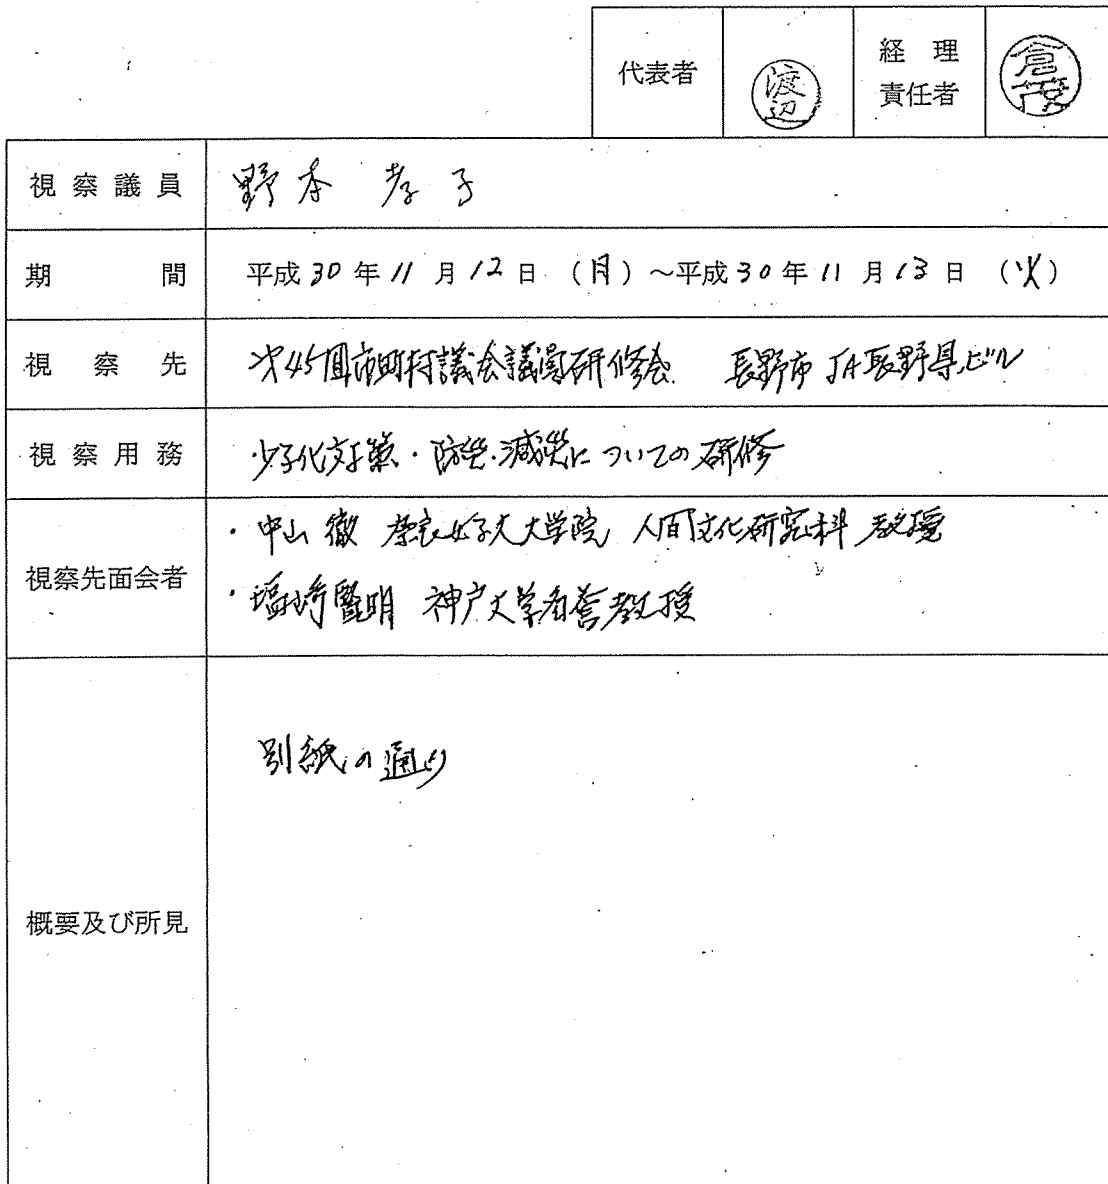 代表者 渡辺 経理責任者
視察議員 野本 孝子
期間 平成30年11月12日(月)~平成30年11月13日(火)
視察先 才45回市町村議会議員研修会 長野市JA長野県ビル
視察用務 少子化対策・防災・減災についての研修
視察先面会者 ・中山 徹 奈良女子大大学院 人間文化研究科 教授
・塩崎賢明 神戸大学名誉教授
概要及び所見 別紙の通り